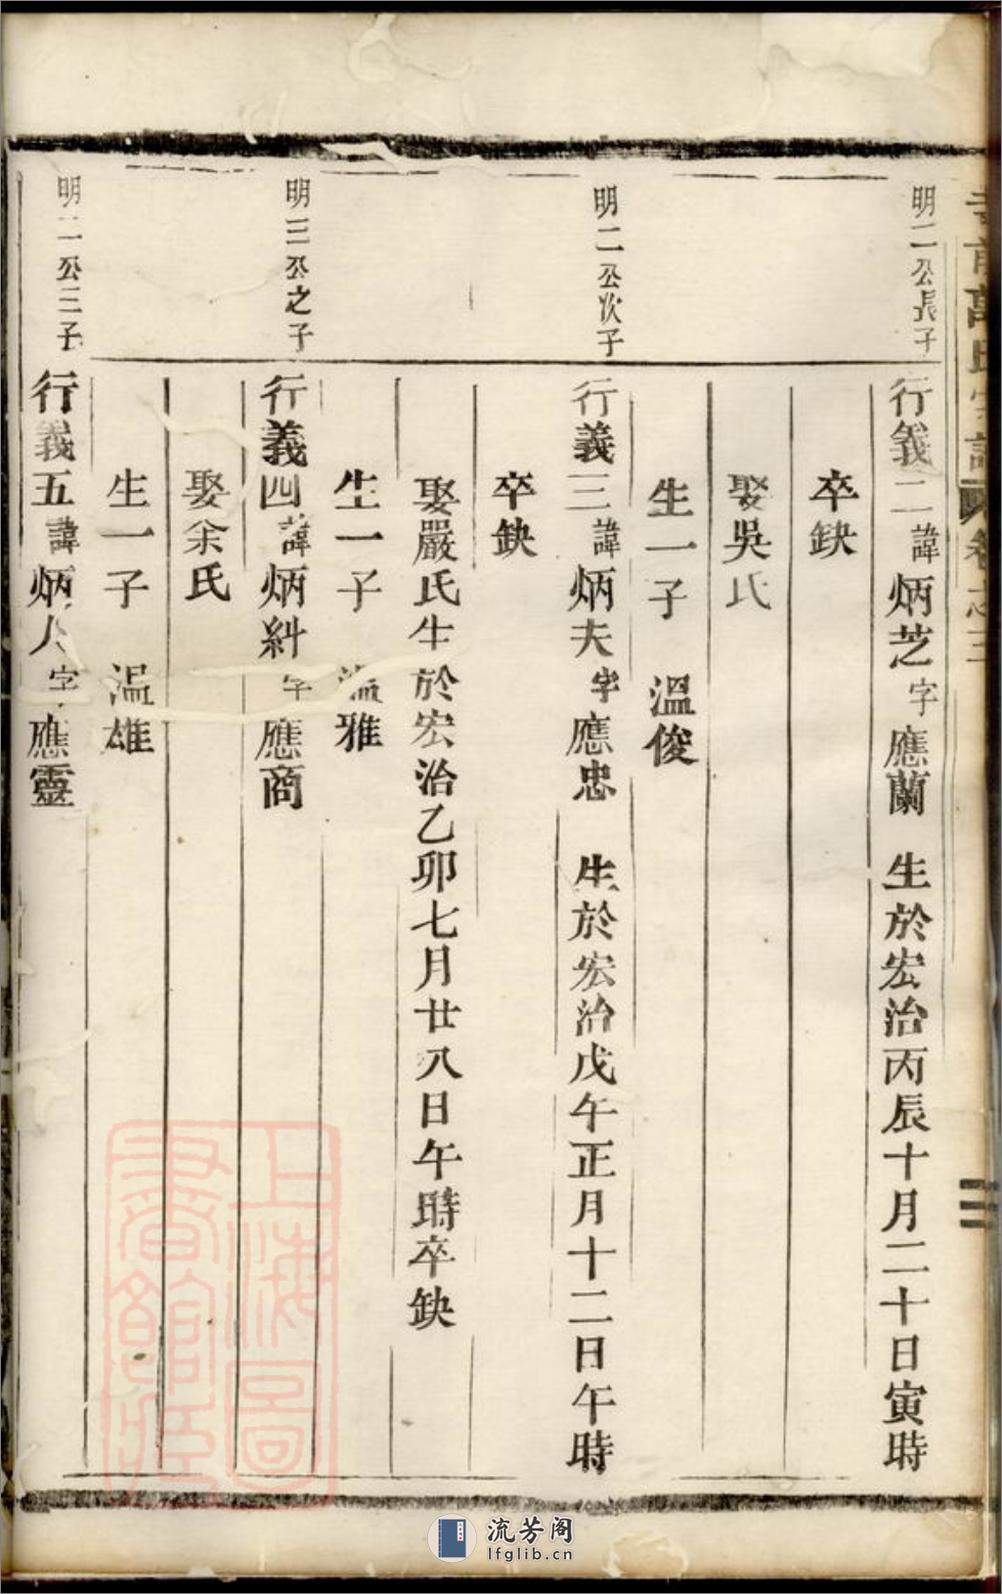 萬氏宗譜 卷之三
明二公長子
行義二諱炳芝字應蘭 生於宏治丙辰十月二十日寅時
卒缺
娶吳氏
生一子 溫俊
明二公次子
行義三諱炳夫字應忠 生於宏治戊午正月十二日午時
卒缺
娶嚴氏生於宏治乙卯七月廿八日午時卒缺
生一子 溫雅
明三公之子
行義四諱炳糾字應商
娶余氏
生一子 溫雄
明二公三子
行義五諱炳人字應靈
上海圖書館藏
流芳阁
lfglib.cn